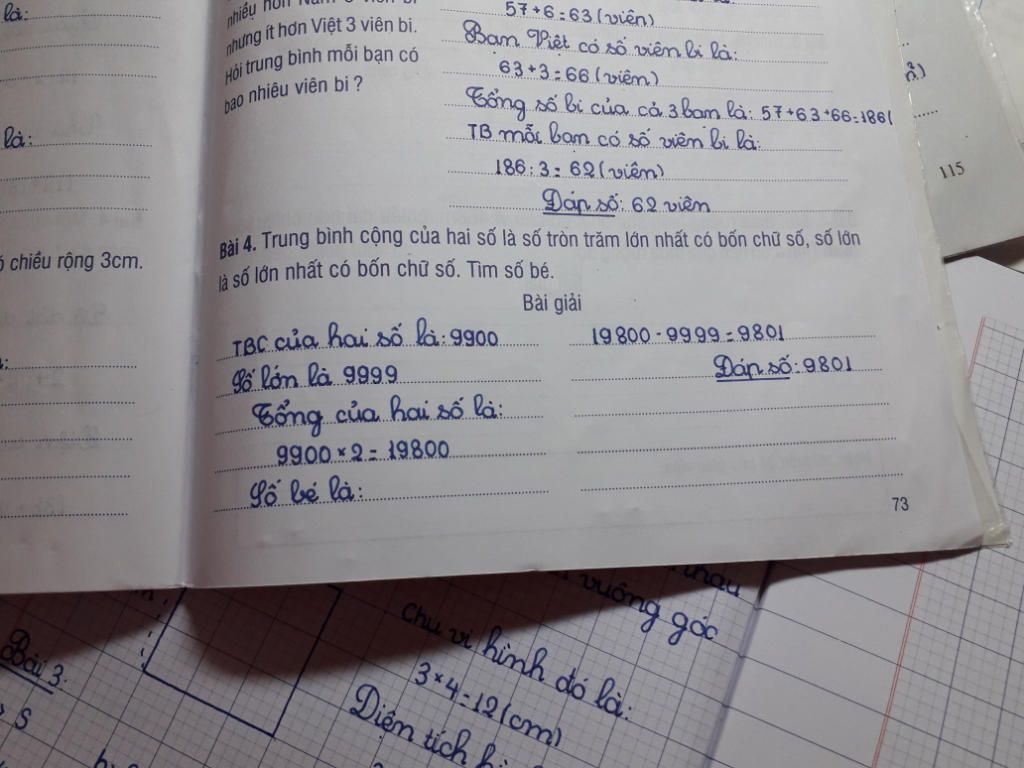 là:
là:
ó chiều rộng 3cm.
nhiều hơn Nam
nhưng ít hơn Việt 3 viên bi.
Hỏi trung bình mỗi bạn có
bao nhiêu viên bi ?
57+6=63(viên)
Bạn Việt có số viên bi là:
63+3=66(viên)
Tổng số bi của cả 3 bạn là: 57+63+66=186(
TB mỗi bạn có số viên bi là:
186:3=62(viên)
Đáp số: 62 viên
Bài 4. Trung bình cộng của hai số là số tròn trăm lớn nhất có bốn chữ số, số lớn
là số lớn nhất có bốn chữ số. Tìm số bé.
Bài giải
TBC của hai số là: 9900
Số lớn là 9999
Tổng của hai số là:
9900 × 2 = 19800
Số bé là:
19800 - 9999 = 9801
Đáp số: 9801
73
115
Bài 3:
S
vuông góc
chu vi hình đó là:
3×4=12(cm)
Diện tích